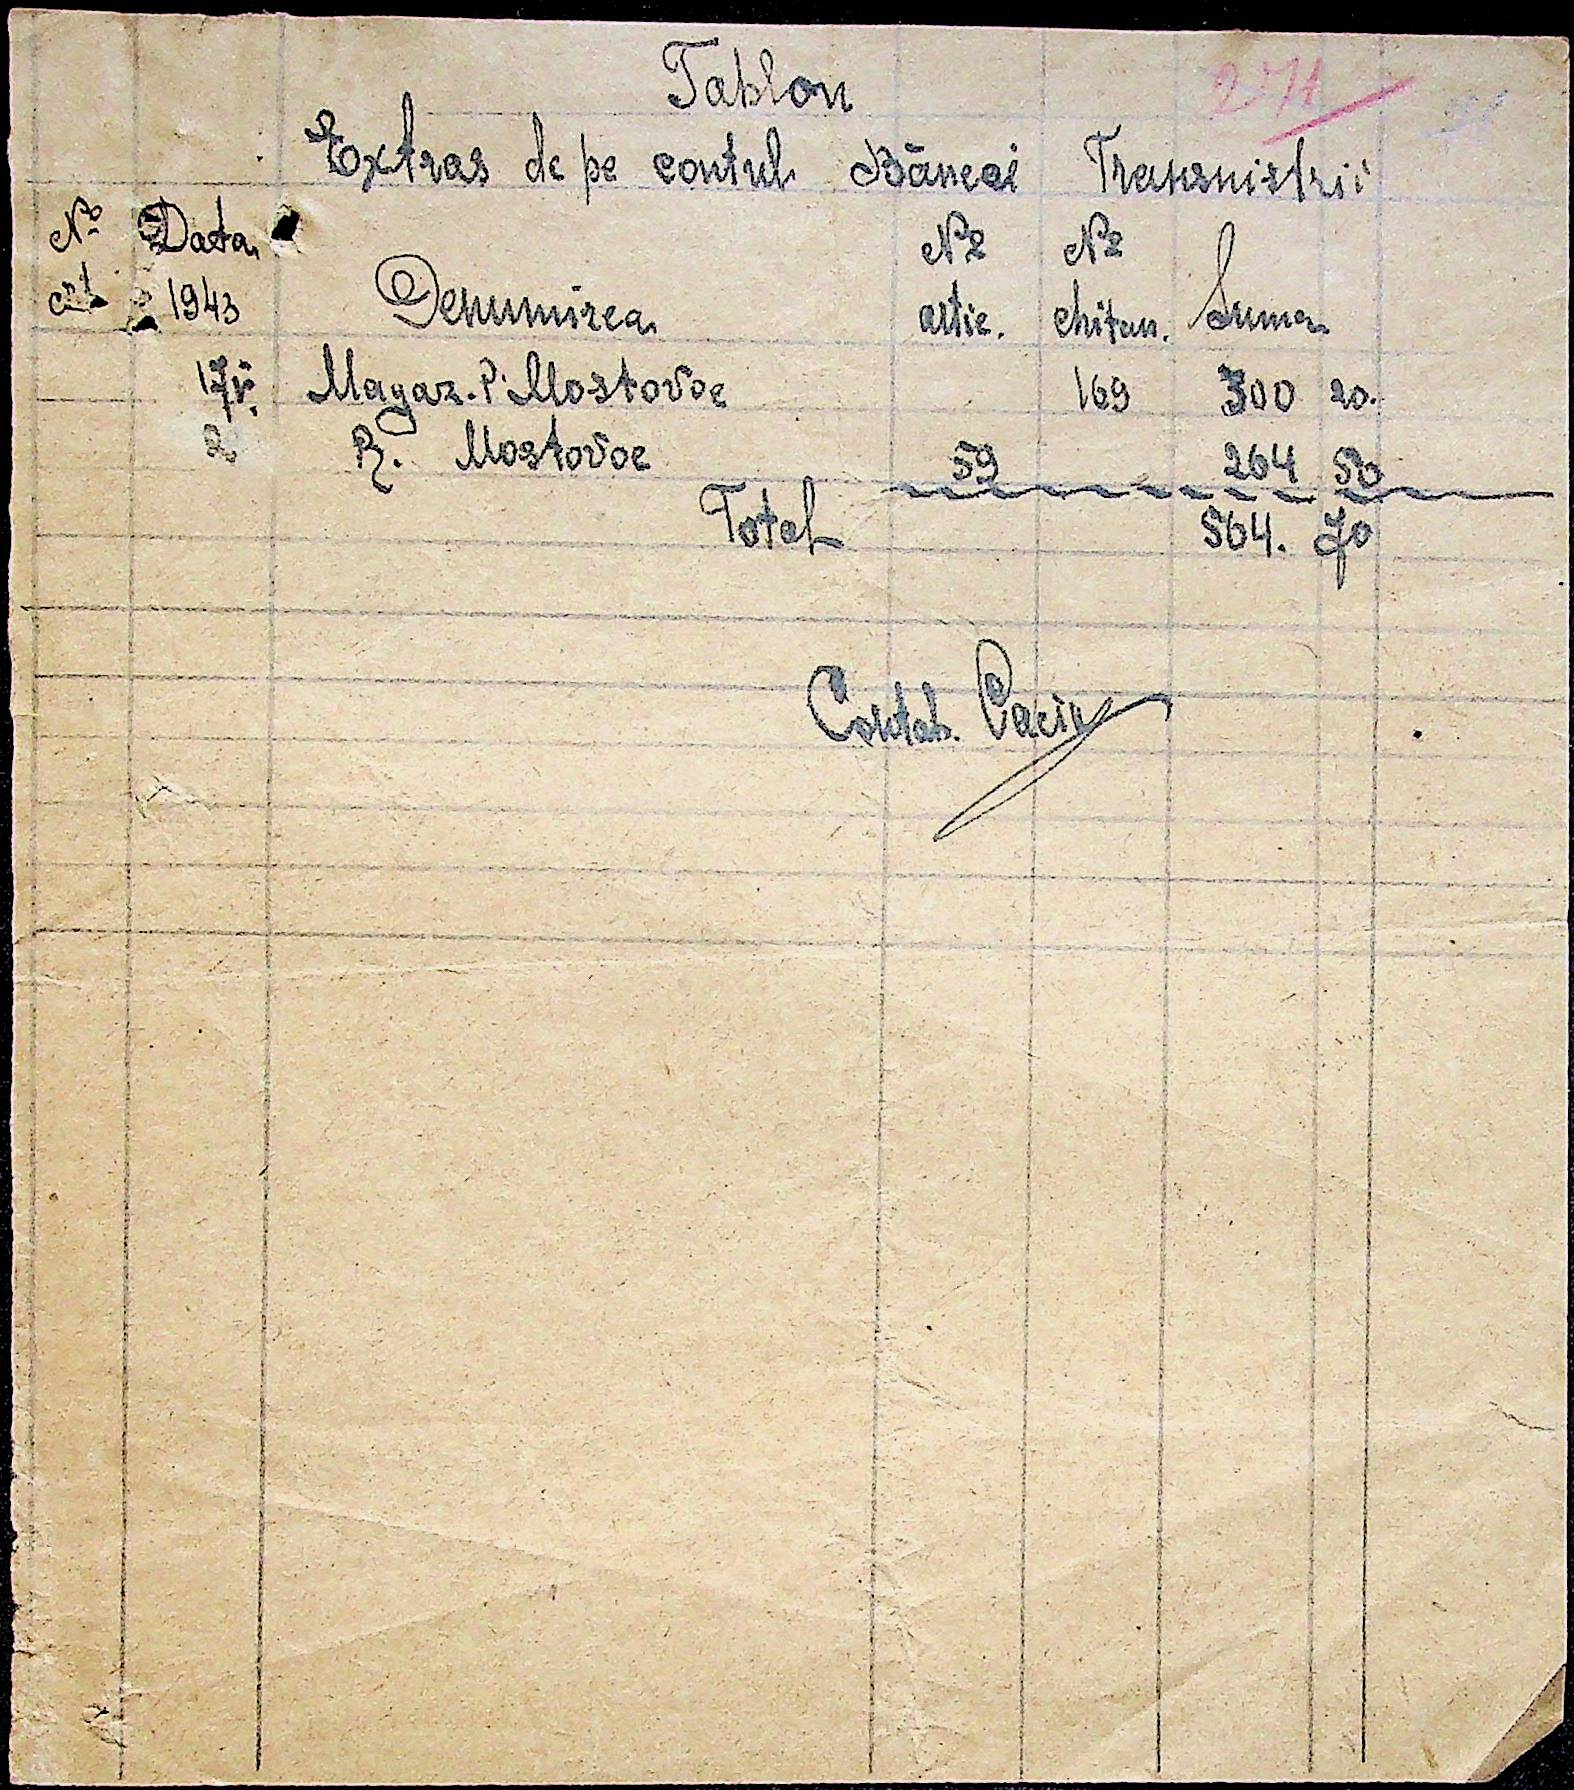 Tablou
271
Extras de pe contul Băncei Transnistrii
No Data No No
crt 1943 Denumirea artic. chitan. Suma
Magaz. P. Mostovoe 169 300 20.
2 R. Mostovoe 59 264 50
Total 564. 70
Contab.